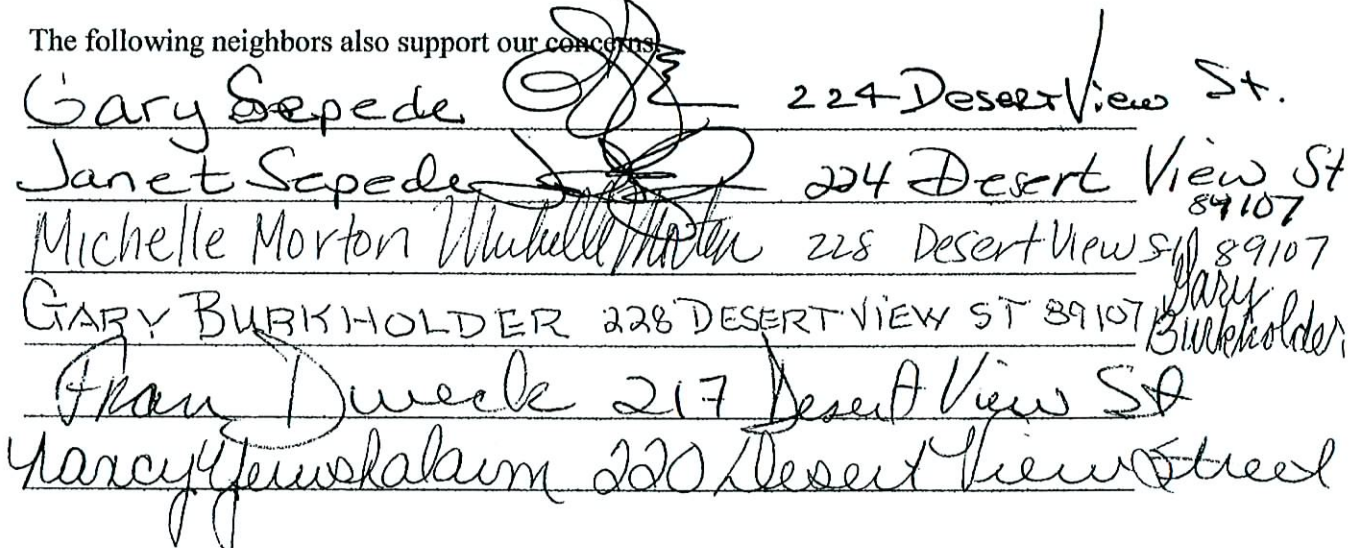 The following neighbors also support our concerns:
Gary Sepede 224 Desert View St.
Janet Sepede 224 Desert View St
89107
Michelle Morton Michelle Morton 228 Desert View St 89107
GARY BURKHOLDER 228 DESERT VIEW ST 89107 Gary Burkholder
Fran Dweck 217 Desert View St
Nancy Yerushalaim 220 Desert View Street